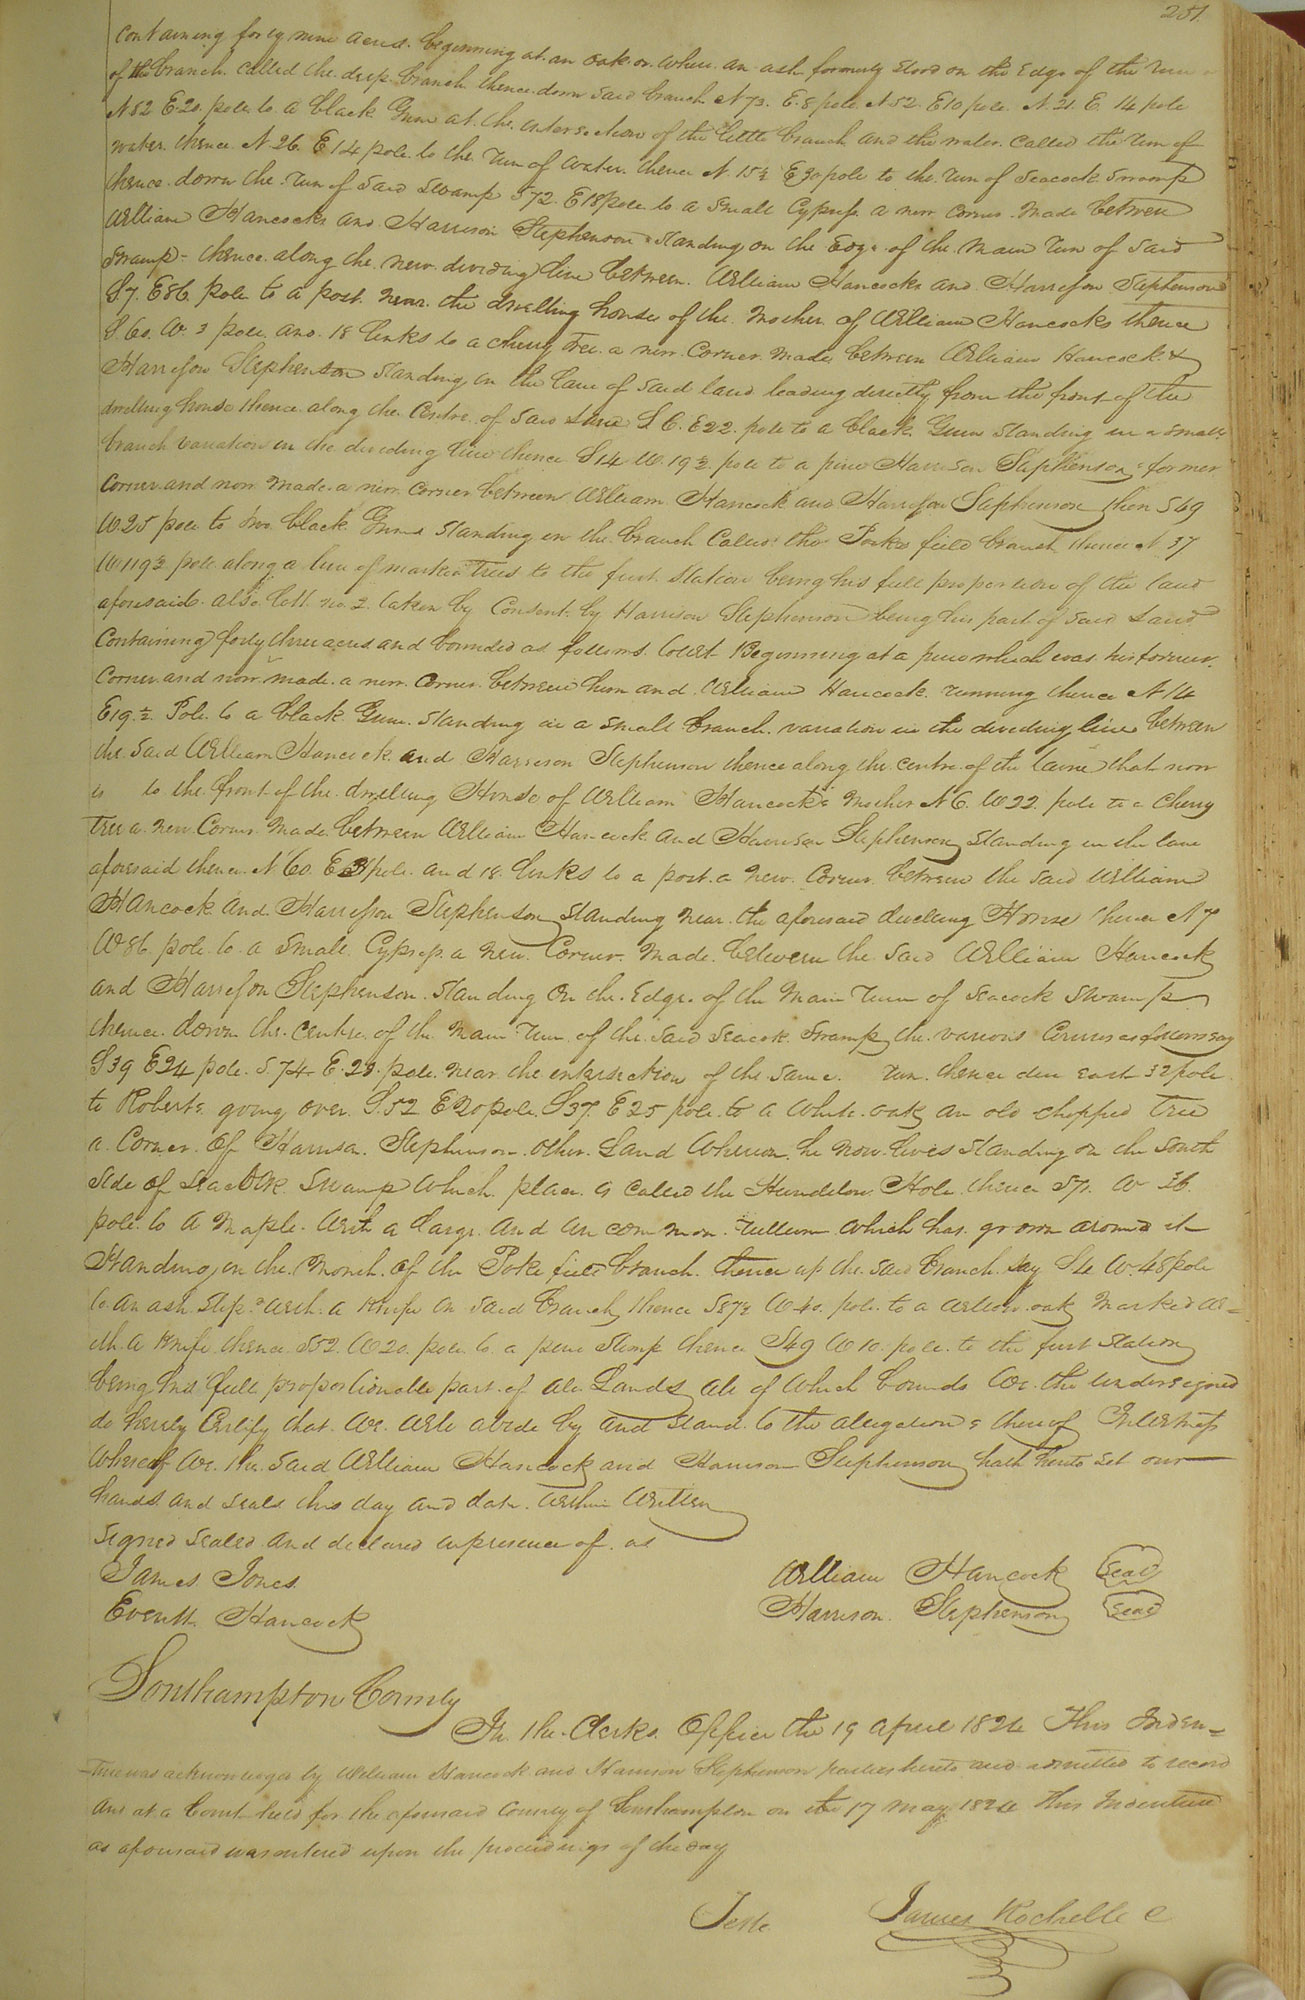 251
containing forty nine acres. beginning at an oak or where an ash formerly stood on the Edge of the run
of the branch called the deep branch thence down said branch N 73. E. 8 pole N 52. E 10 pole N. 21. E 14 pole
N 52 E 20. pole to a black Gum at the intersection of the little branch and the water called the run of
water thence N. 26. E 14 pole to the run of water thence N. 15½ E 30 pole to the run of Seacock Swamp
thence down the run of said Swamp S 72. E 18 pole to a small Cypress a new corner made between
William Hancocks and Harrison Stephenson standing on the Edge of the main run of said
Swamp - thence along the new dividing line between William Hancocks and Harrison Stephenson
S 7. E 86 pole to a post near the dwelling house of the Mother of William Hancocks thence
S. 60. W. 3 pole and 18 links to a cherry tree a new corner made between William Hancock &
Harrison Stephenson standing in the lane of said land leading directly from the front of the
dwelling house thence along the Centre of said Lane S 6. E 22. pole to a black Gum standing in a small
branch variation in the dividing line thence S 14 W. 19½ pole to a pine Harrison Stephenson's former
Corner and now made a new corner between William Hancock and Harrison Stephenson then S 49
W 25 pole to two black Gums standing in the branch Called the Poke field branch thence N 37
W 119½ pole along a line of marked trees to the first Station being his full proportion of the land
aforesaid also Lott no 2. taken by Consent by Harrison Stephenson being his part of said Land
Containing forty three acres and bounded as follows towit Beginning at a pine which was his former
Corner and now made a new Corner between him and William Hancock running thence N 14
E 19½ Pole to a black Gum standing in a small branch variation in the dividing line between
the said William Hancock and Harrison Stephenson thence along the centre of the lane that now
is to the front of the dwelling House of William Hancock's Mother N 6. W 22 pole to a Cherry
Tree a new Corner made between William Hancock and Harrison Stephenson standing in the lane
aforesaid thence N 60. E 3 pole and 18 links to a post a new Corner between the said William
Hancock and Harrison Stephenson standing near the aforesaid dwelling House thence N 7
W 86 pole to a small Cypress a new Corner made between the said William Hancock
and Harrison Stephenson standing on the Edge of the Main run of Seacock Swamp
thence down the centre of the main run of the said Seacock Swamp the various Courses as follows say
S 39 E 24 pole S 74 E 28 pole near the intersection of the same run thence due east 32 pole
to Roberts going over S. 52 E 20 pole S 37. E 25 pole to a White oak an old chopped tree
a Corner of Harrison Stephenson other Land whereon he now lives standing on the South
side of Seacock Swamp which place is called the Hole thence S 7. W 36
pole to a Maple with a large and un common which has grown around it
Standing in the Mouth of the Poke field branch thence up the said branch say S 4 W. 48 pole
to an ash with a Knife on said branch thence S 87½ W 40. pole to a willow oak marked wi=
ith a Knife thence S 52. W 20. pole to a pine Stump thence S 49 W 10. pole to the first Station
being his full proportionable part of all Lands all of which bounds We the undersigned
do hereby Certify that We will abide by and stand to the allegations thereof In Witness
whereof We the said William Hancock and Harrison Stephenson hath hereto set our
hands and seals this day and date within Written
signed sealed and declared in presence of as
James Jones
Everett Hancock
William Hancock seal
Harrison Stephenson seal
Southampton County
In the Clerks Office the 19 April 1824 This Inden=
=ture was acknowledged by William Hancock and Harrison Stephenson parties hereto and admitted to record
And at a Court held for the aforesaid County of Southampton on the 17 May 1824 this Indenture
as aforesaid was entered upon the proceedings of the day
Teste James Rochelle C